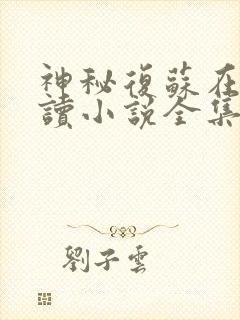 神秘復蘇在
讀小說全集
劉子雲